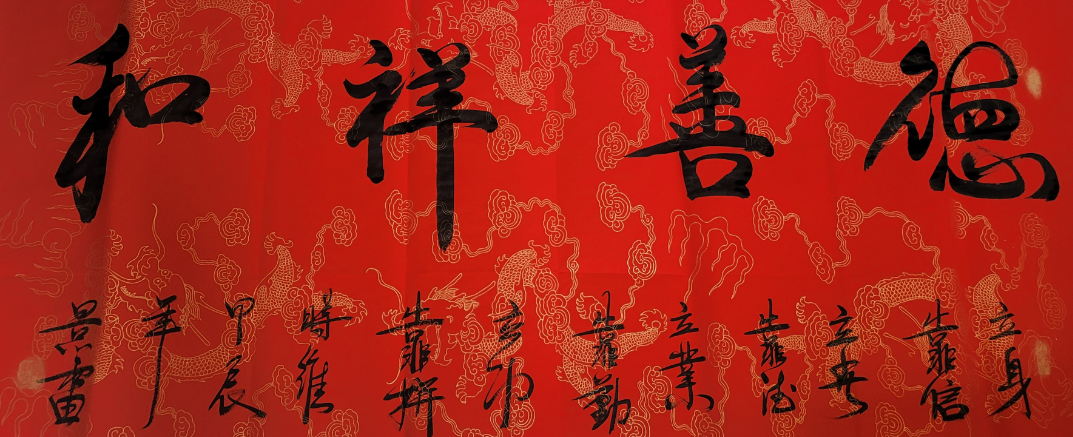 德善祥和
立身
靠信
立
靠德
立業
靠勤
立
靠拼
時維
甲辰
年
景雷